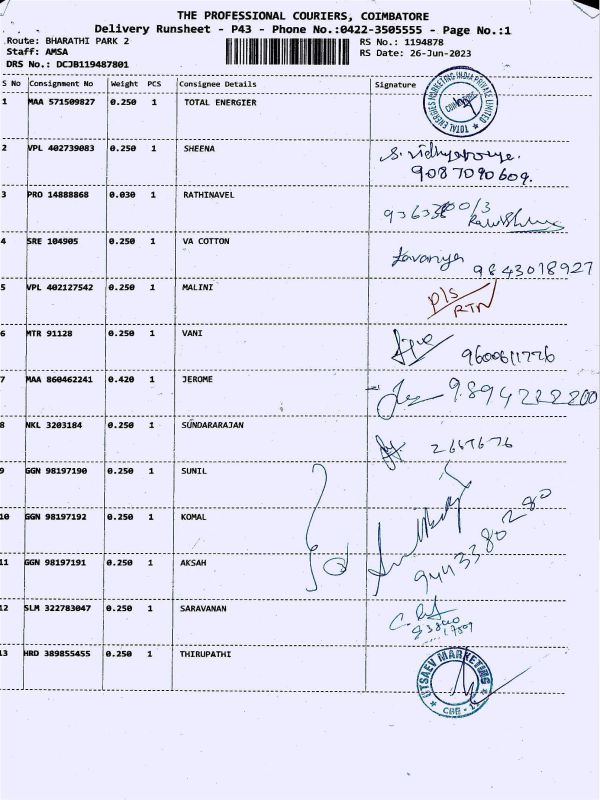 THE PROFESSIONAL COURIERS, COIMBATORE
Delivery Runsheet - P43 - Phone No.:0422-3505555 - Page No.:1
Route: BHARATHI PARK 2
RS No.: 1194878
Staff: AMSA
RS Date: 26-Jun-2023
DRS No.: DCJB119487801
S No Consignment No Weight PCS Consignee Details Signature
1 MAA 571509827 0.250 1 TOTAL ENERGIER
TOTAL ENERGIES MARKETING INDIA PRIVATE LIMITED
2 VPL 402739083 0.250 1 SHEENA
9087090609.
3 PRO 14888868 0.030 1 RATHINAVEL
4 SRE 104905 0.250 1 VA COTTON
Lavanya 9843018927
5 VPL 402127542 0.250 1 MALINI
P/S
RTN
6 MTR 91128 0.250 1 VANI
9600611776
7 MAA 860462241 0.420 1 JEROME
9894222200
8 NKL 3203184 0.250 1 SUNDARARAJAN
9 GGN 98197190 0.250 1 SUNIL
10 GGN 98197192 0.250 1 KOMAL
9443380280
11 GGN 98197191 0.250 1 AKSAH
12 SLM 322783047 0.250 1 SARAVANAN
13 HRD 389855455 0.250 1 THIRUPATHI
UTSAEV MARKETING